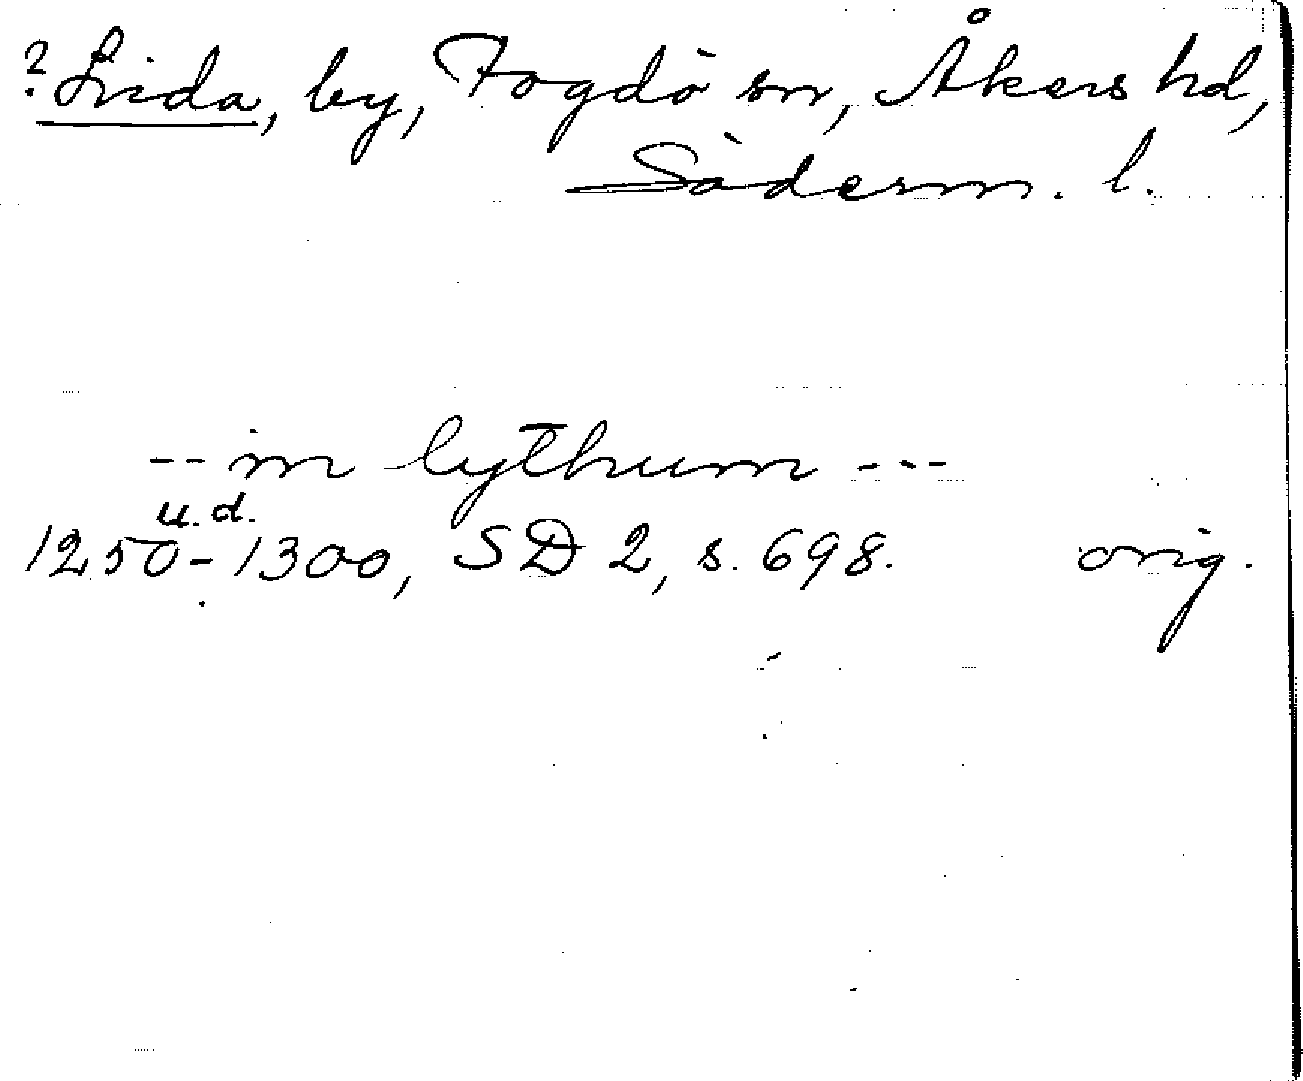 ? Lida, by, Fogdö sn, Åkers hd,
Söderm. l.
-- in lythum ---
u.d.
1250-1300, SD 2, s. 698. orig.